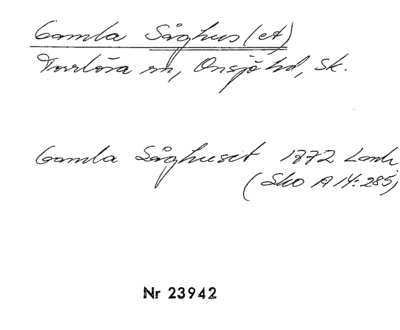 Gamla Såghus(et)
Torrlösa sn, Onsjö hd, Sk.
Gamla Såghuset 1772 Lantm
(Sko A 14:285)
Nr 23942